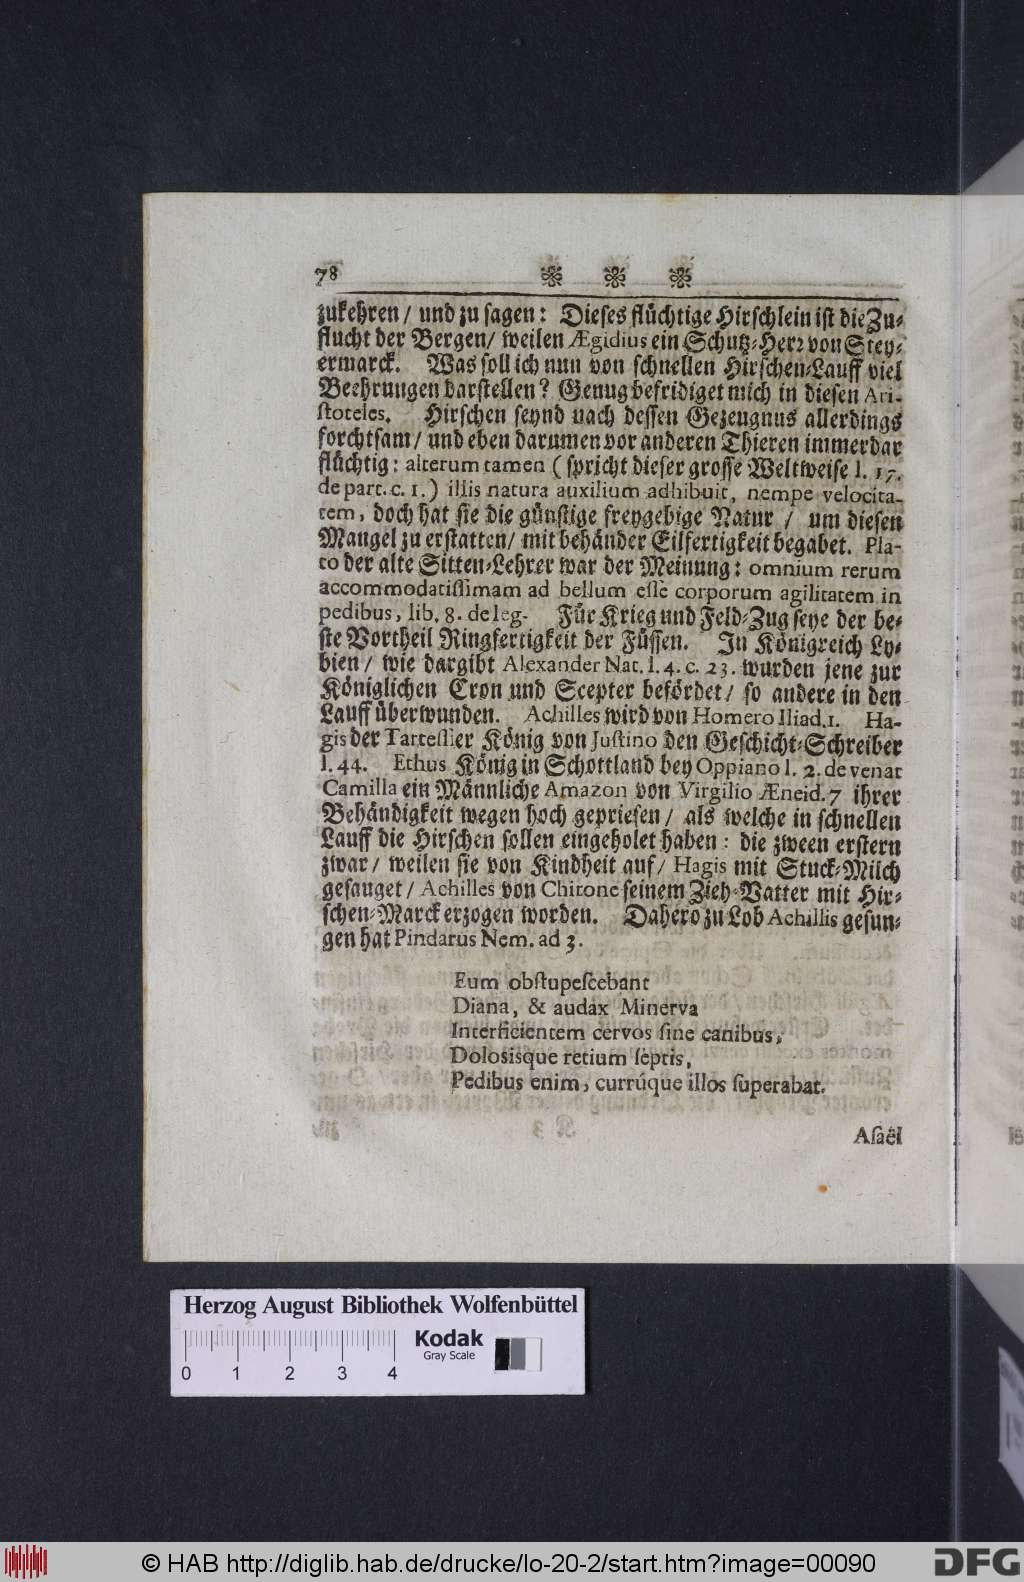 78
zukehren / und zu sagen: Dieses flüchtige Hirschlein ist die Zu-
flucht der Bergen / weilen Ægidius ein Schutz-Herr von Stey-
ermarck. Was soll ich nun von schnellen Hirschen-Lauff viel
Beehrungen darstellen? Genug befridiget mich in diesen Ari-
stoteles. Hirschen seynd nach dessen Gezeugnus allerdings
forchtsam / und eben darumen vor anderen Thieren immerdar
flüchtig: alterum tamen (spricht dieser grosse Weltweise l. 17.
de part. c. 1.) illis natura auxilium adhibuit, nempe velocita-
tem, doch hat sie die günstige freygebige Natur / um diesen
Mangel zu erstatten / mit behänder Eilfertigkeit begabet. Pla-
to der alte Sitten-Lehrer war der Meinung: omnium rerum
accommodatissimam ad bellum esse corporum agilitatem in
pedibus, lib. 8. de leg. Für Krieg und Feld-Zug seye der be-
ste Vortheil Ringfertigkeit der Füssen. In Königreich Ly-
bien / wie dargibt Alexander Nat. l. 4. c. 23. wurden jene zur
Königlichen Cron und Scepter befördet / so andere in den
Lauff überwunden. Achilles wird von Homero Iliad. 1. Ha-
gis der Tartessier König von Justino den Geschicht-Schreiber
l. 44. Ethus König in Schottland bey Oppiano l. 2. de venat
Camilla ein Männliche Amazon von Virgilio Æneid. 7 ihrer
Behändigkeit wegen hoch gepriesen / als welche in schnellen
Lauff die Hirschen sollen eingeholet haben: die zween erstern
zwar / weilen sie von Kindheit auf / Hagis mit Stuck-Milch
gesauget / Achilles von Chirone seinem Zieh-Vatter mit Hir-
schen-Marck erzogen worden. Dahero zu Lob Achillis gesun-
gen hat Pindarus Nem. ad 3.
Eum obstupescebant
Diana, & audax Minerva
Interficientem cervos sine canibus,
Dolosisque retium septis,
Pedibus enim, currúque illos superabat.
Asaël
Herzog August Bibliothek Wolfenbüttel
Kodak
Gray Scale
0 1 2 3 4
© HAB http://diglib.hab.de/drucke/lo-20-2/start.htm?image=00090
DFG